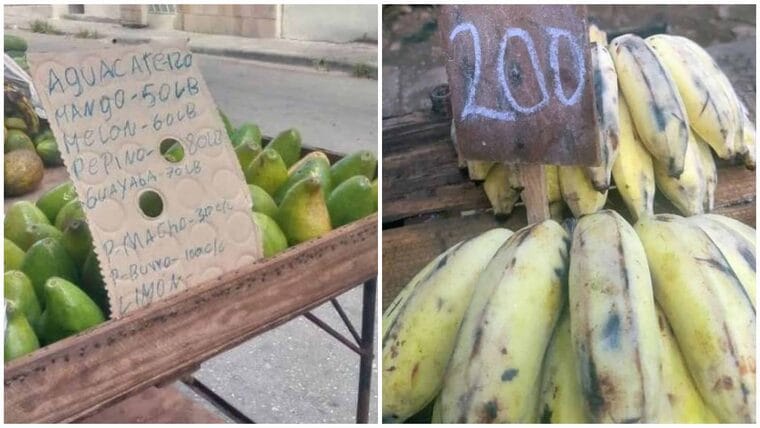 AGUACATE 120
MANGO-50LB
MELON-60LB
PEPINO-80LB
GUAYABA-70LB
P. MACHO-30 c/u
P. BURRO-100 c/c
LIMON-
200